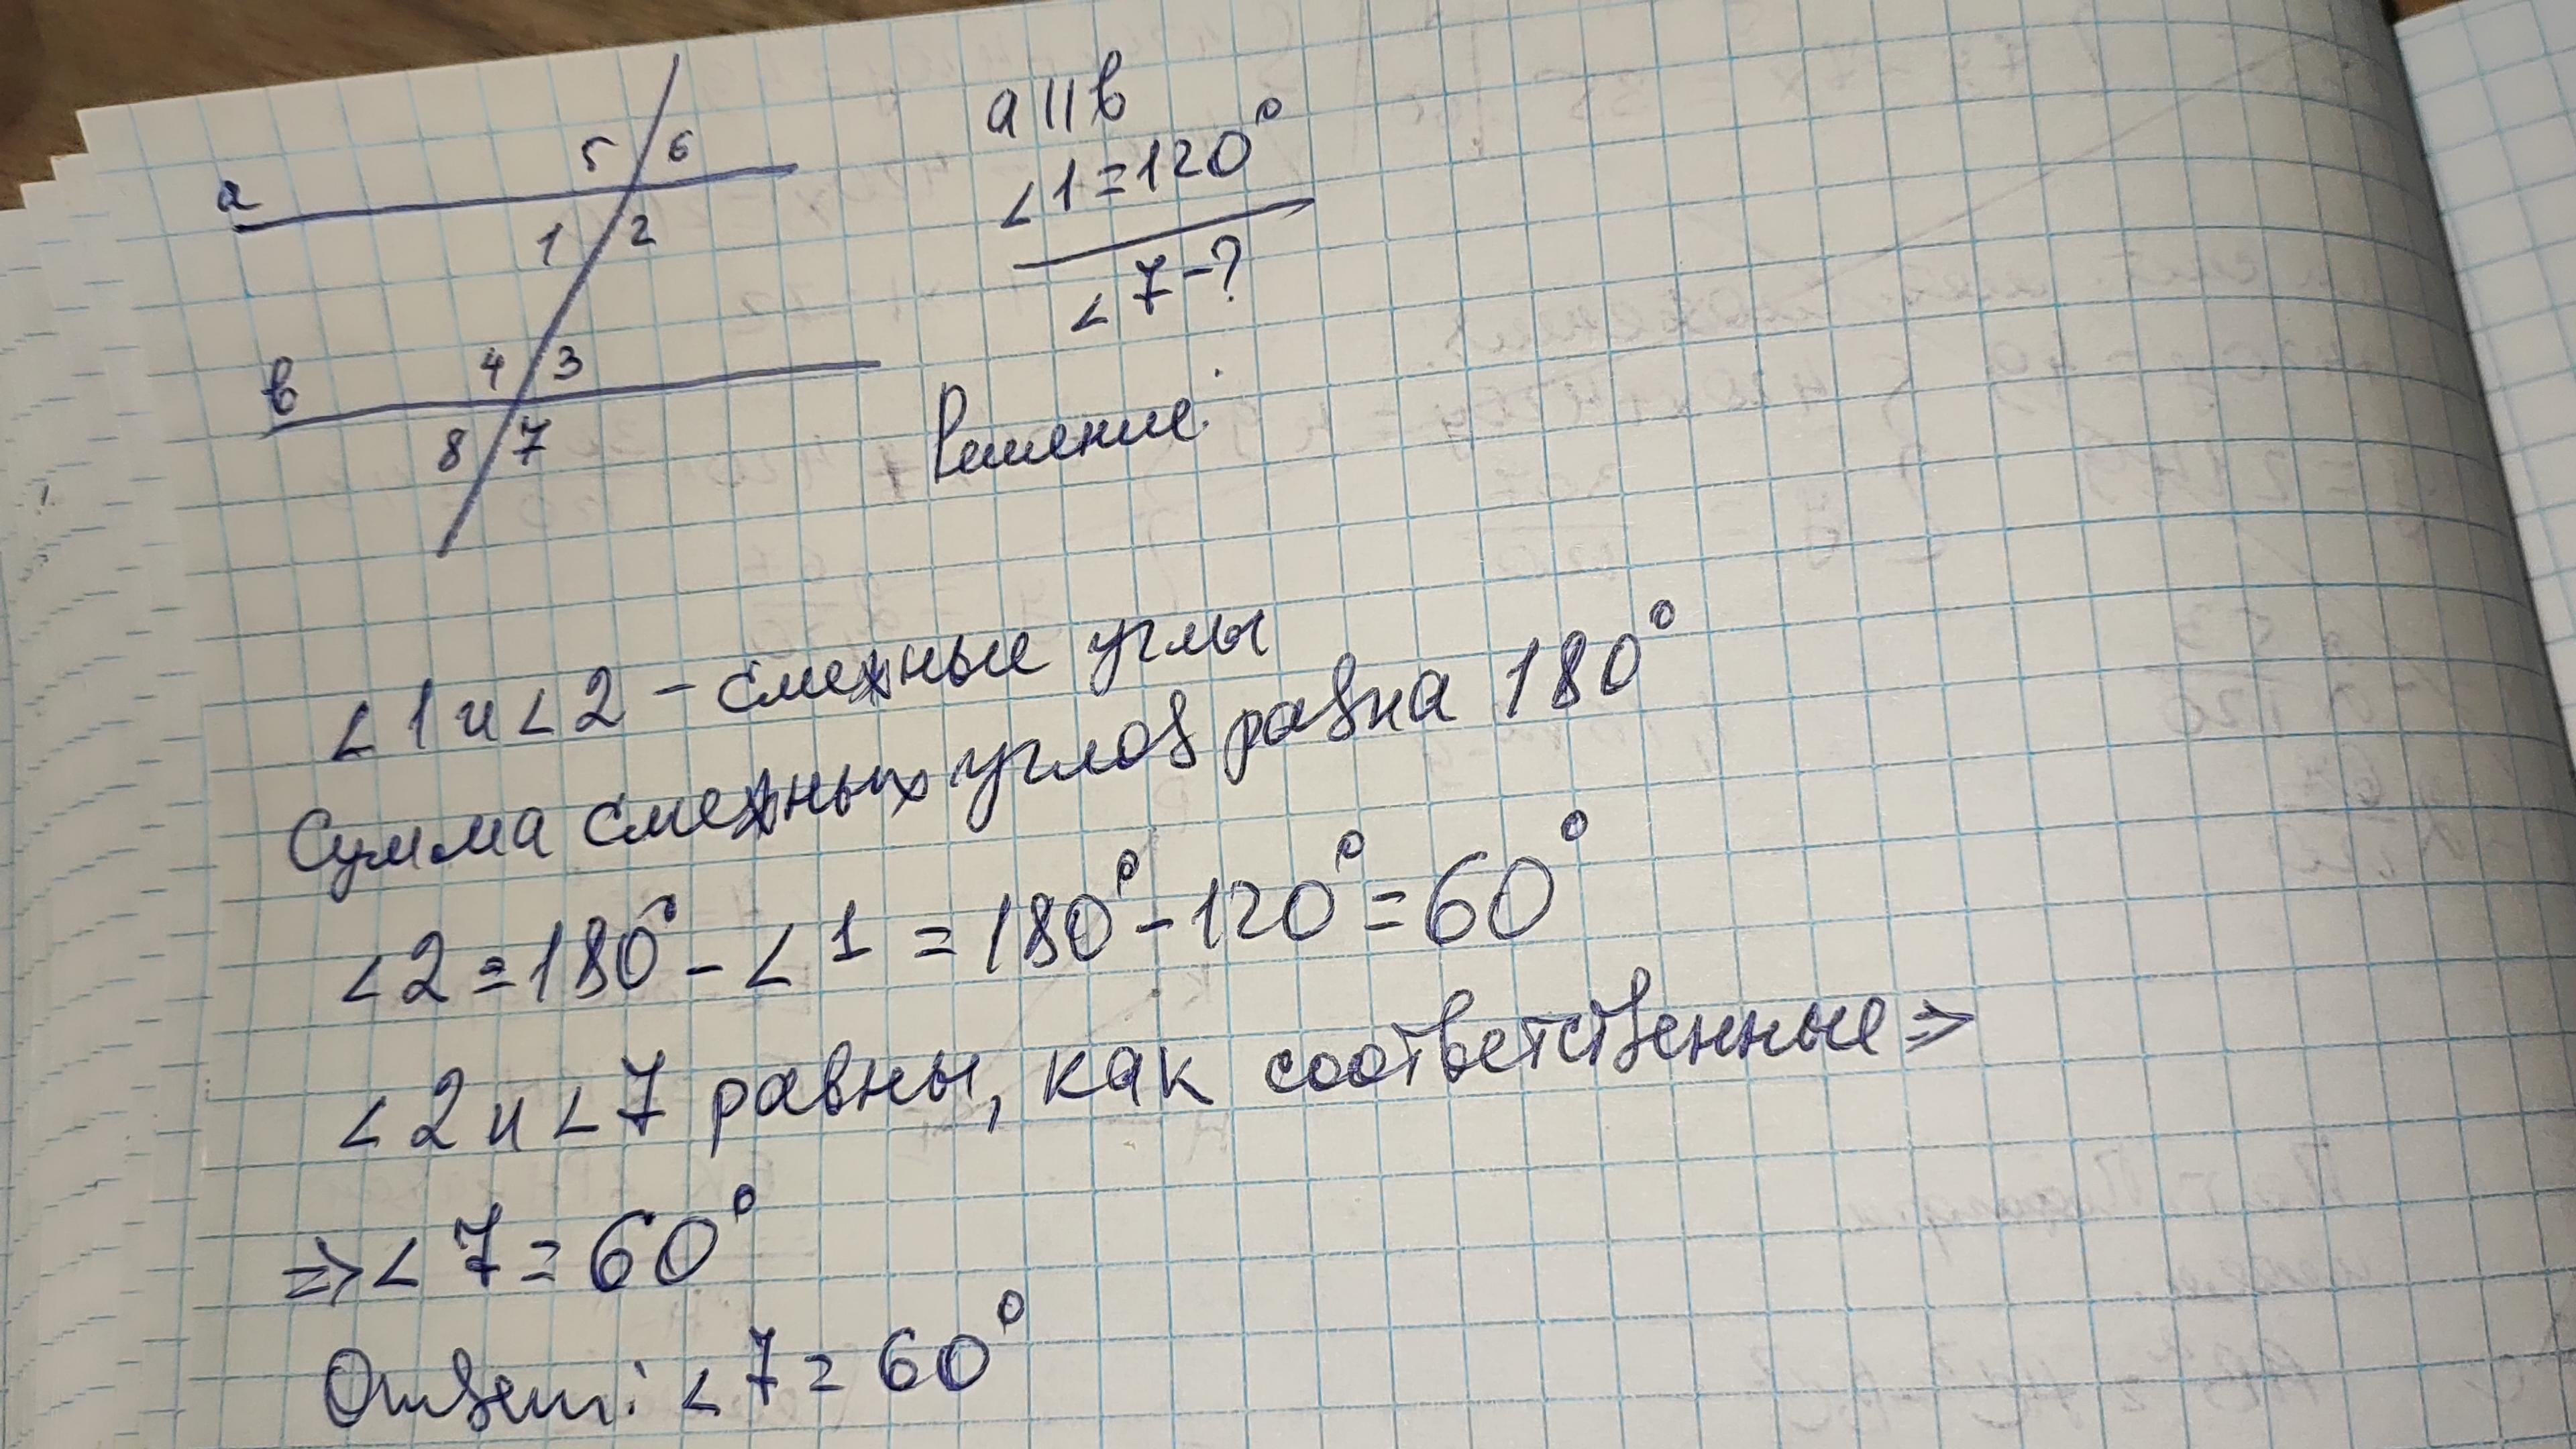 5 6
a
1 2
4 3
в
8 7
a || в
∠1 = 120°
∠7 - ?
Решение:
∠1 и ∠2 - смежные углы
Сумма смежных углов равна 180°
∠2 = 180° - ∠1 = 180° - 120° = 60°
∠2 и ∠7 равны, как соответственные =>
=> ∠7 = 60°
Ответ: ∠7 = 60°